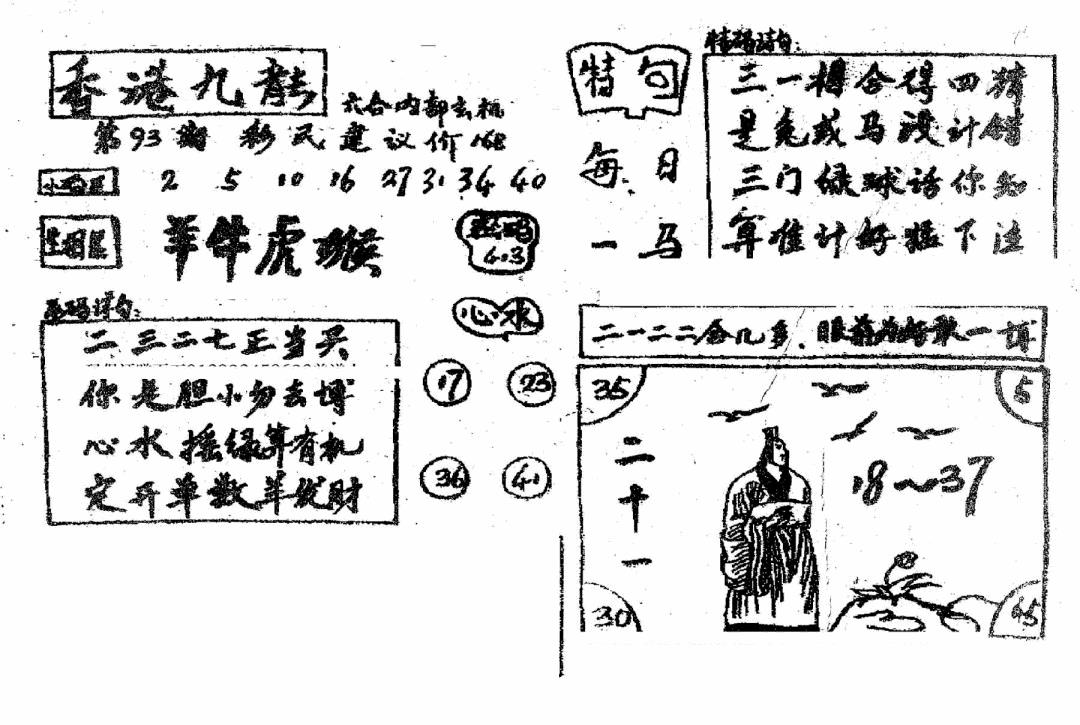 香港九龍
六合内部玄机
第93期 彩民建议价168
2 5 10 16 27 31 34 40
生肖区
羊牛虎猴
43
二三二七正当买
你是胆小勿去博
心水摇绿算有机
定开单数羊发财
心水
17 23
36 41
特句
每日
一马
特码诗句:
三一相合得四猜
是兔或马没计错
三门绿球话你知
算准计好猛下注
二一二二合几多.眼前为好敢一博
35 5
二十一
18~37
30 45